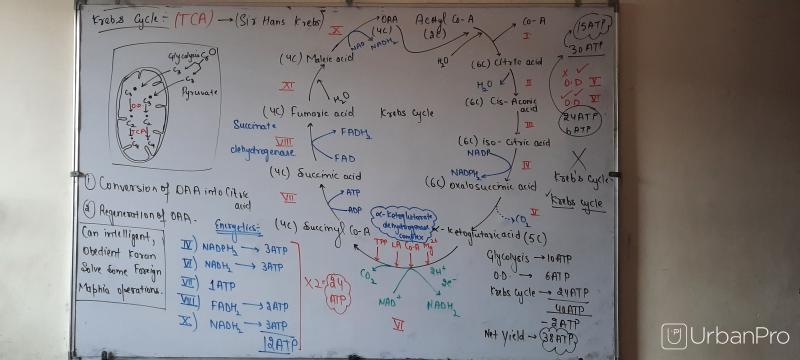 Krebs Cycle = (TCA) → (Sir Hans Krebs)
Glycolysis C6
C3
C3
Pyruvate
C3
C3
O.D
C2
C2
TCA
X
OAA
(4C)
NAD
NADH2
Acetyl Co-A
(2C)
Co-A
I
H2O
(6C) Citric acid
H2O
II
(6C) Cis-Aconic acid
III
(6C) iso-Citric acid
NADP
NADPH2
IV
(6C) Oxalosuccinic acid
CO2
V
α-Ketoglutaric acid (5C)
α-ketoglutarate
dehydrogenase
complex
TPP LA Co-A Mg2+
CO2
NAD+
NADH2
2H+
2e-
VI
(4C) Succinyl Co-A
ATP
ADP
VII
(4C) Succinic acid
Succinate
dehydrogenase
VIII
FADH2
FAD
(4C) Fumaric acid
H2O
XI
(4C) Maleic acid
Krebs Cycle
15ATP
30ATP
X ✓
O.D V
O.D VI
24ATP
6ATP
X
Kreb's Cycle
✓ Krebs cycle
① Conversion of OAA into Citric
acid
② Regeneration of OAA.
Can intelligent,
Obedient Karan
Solve Some Foreign
Maphia operations.
Energetics:-
IV) NADPH2 → 3ATP
VI) NADH2 → 3ATP
VII) 1ATP
VIII) FADH2 → 2ATP
X) NADH2 → 3ATP
12ATP
X2=24
ATP
Glycolysis → 10ATP
O.D → 6ATP
Krebs cycle → 24ATP
40ATP
-2ATP
Net Yield → 38ATP
UrbanPro